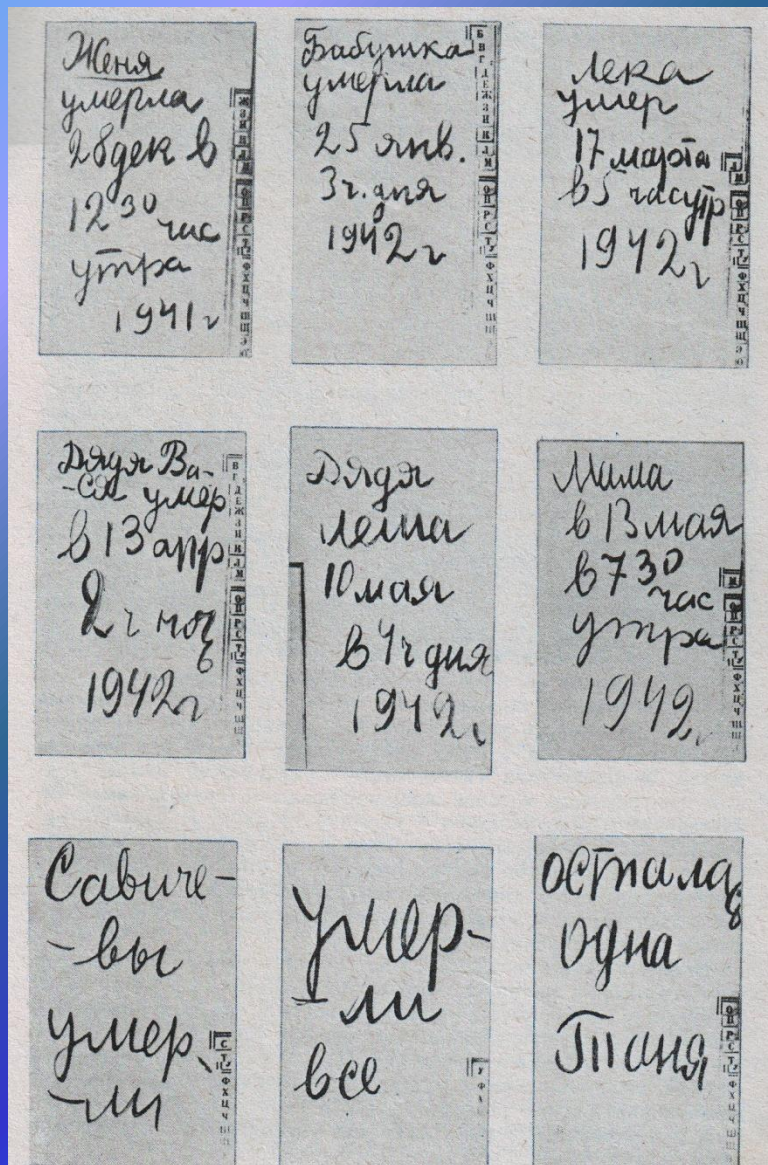 Женя
умерла
28 дек в
12 30 час
утра
1941 г
Бабушка
умерла
25 янв.
3 ч. дня
1942 г
Лека
умер
17 марта
в 5 час утр
1942 г
Дядя Ва-
-ся умер
в 13 апр
2 ч ноч
1942 г
Дядя
Леша
10 мая
в 4 ч дня
1942 г
Мама
в 13 мая
в 7 30
час
утра
1942
Савиче-
-вы
умер
-ли
умер-
-ли
все
осталась
одна
Таня